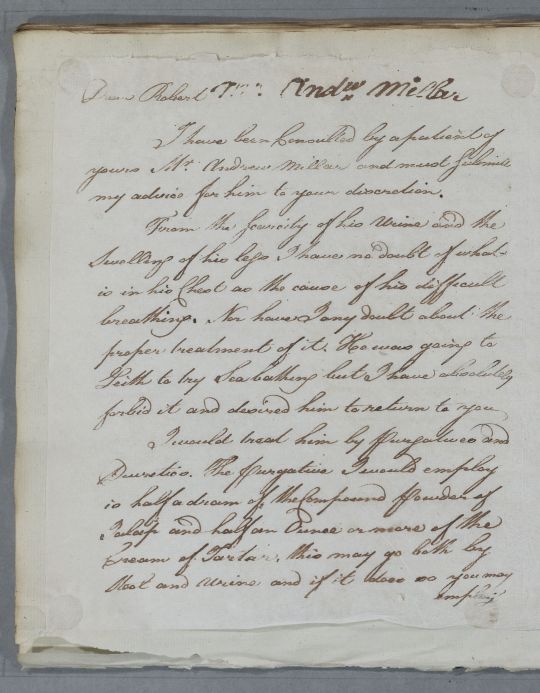 Dear Robert Andw Millar
I have been Consulted by a patient of
yours Mr. Andrew Millar and must Submitt
my advice for him to your discretion.
From the Scarcity of his Urine and the
Swelling of his legs I have no doubt of what
is in his Chest as the cause of his difficult
breathing. Nor have I any doubt about the
proper treatment of it. He was going to
Leith to try Sea bathing but I have absolutely
forbid it and desired him to return to you
I would treat him by Purgatives and
Diuretics. The Purgative I would employ
is half a dram of the Compound Powder of
Jalap and half an Ounce or more of the
Cream of Tartar, this may go both by
Stool and Urine and if it does so you may
employ